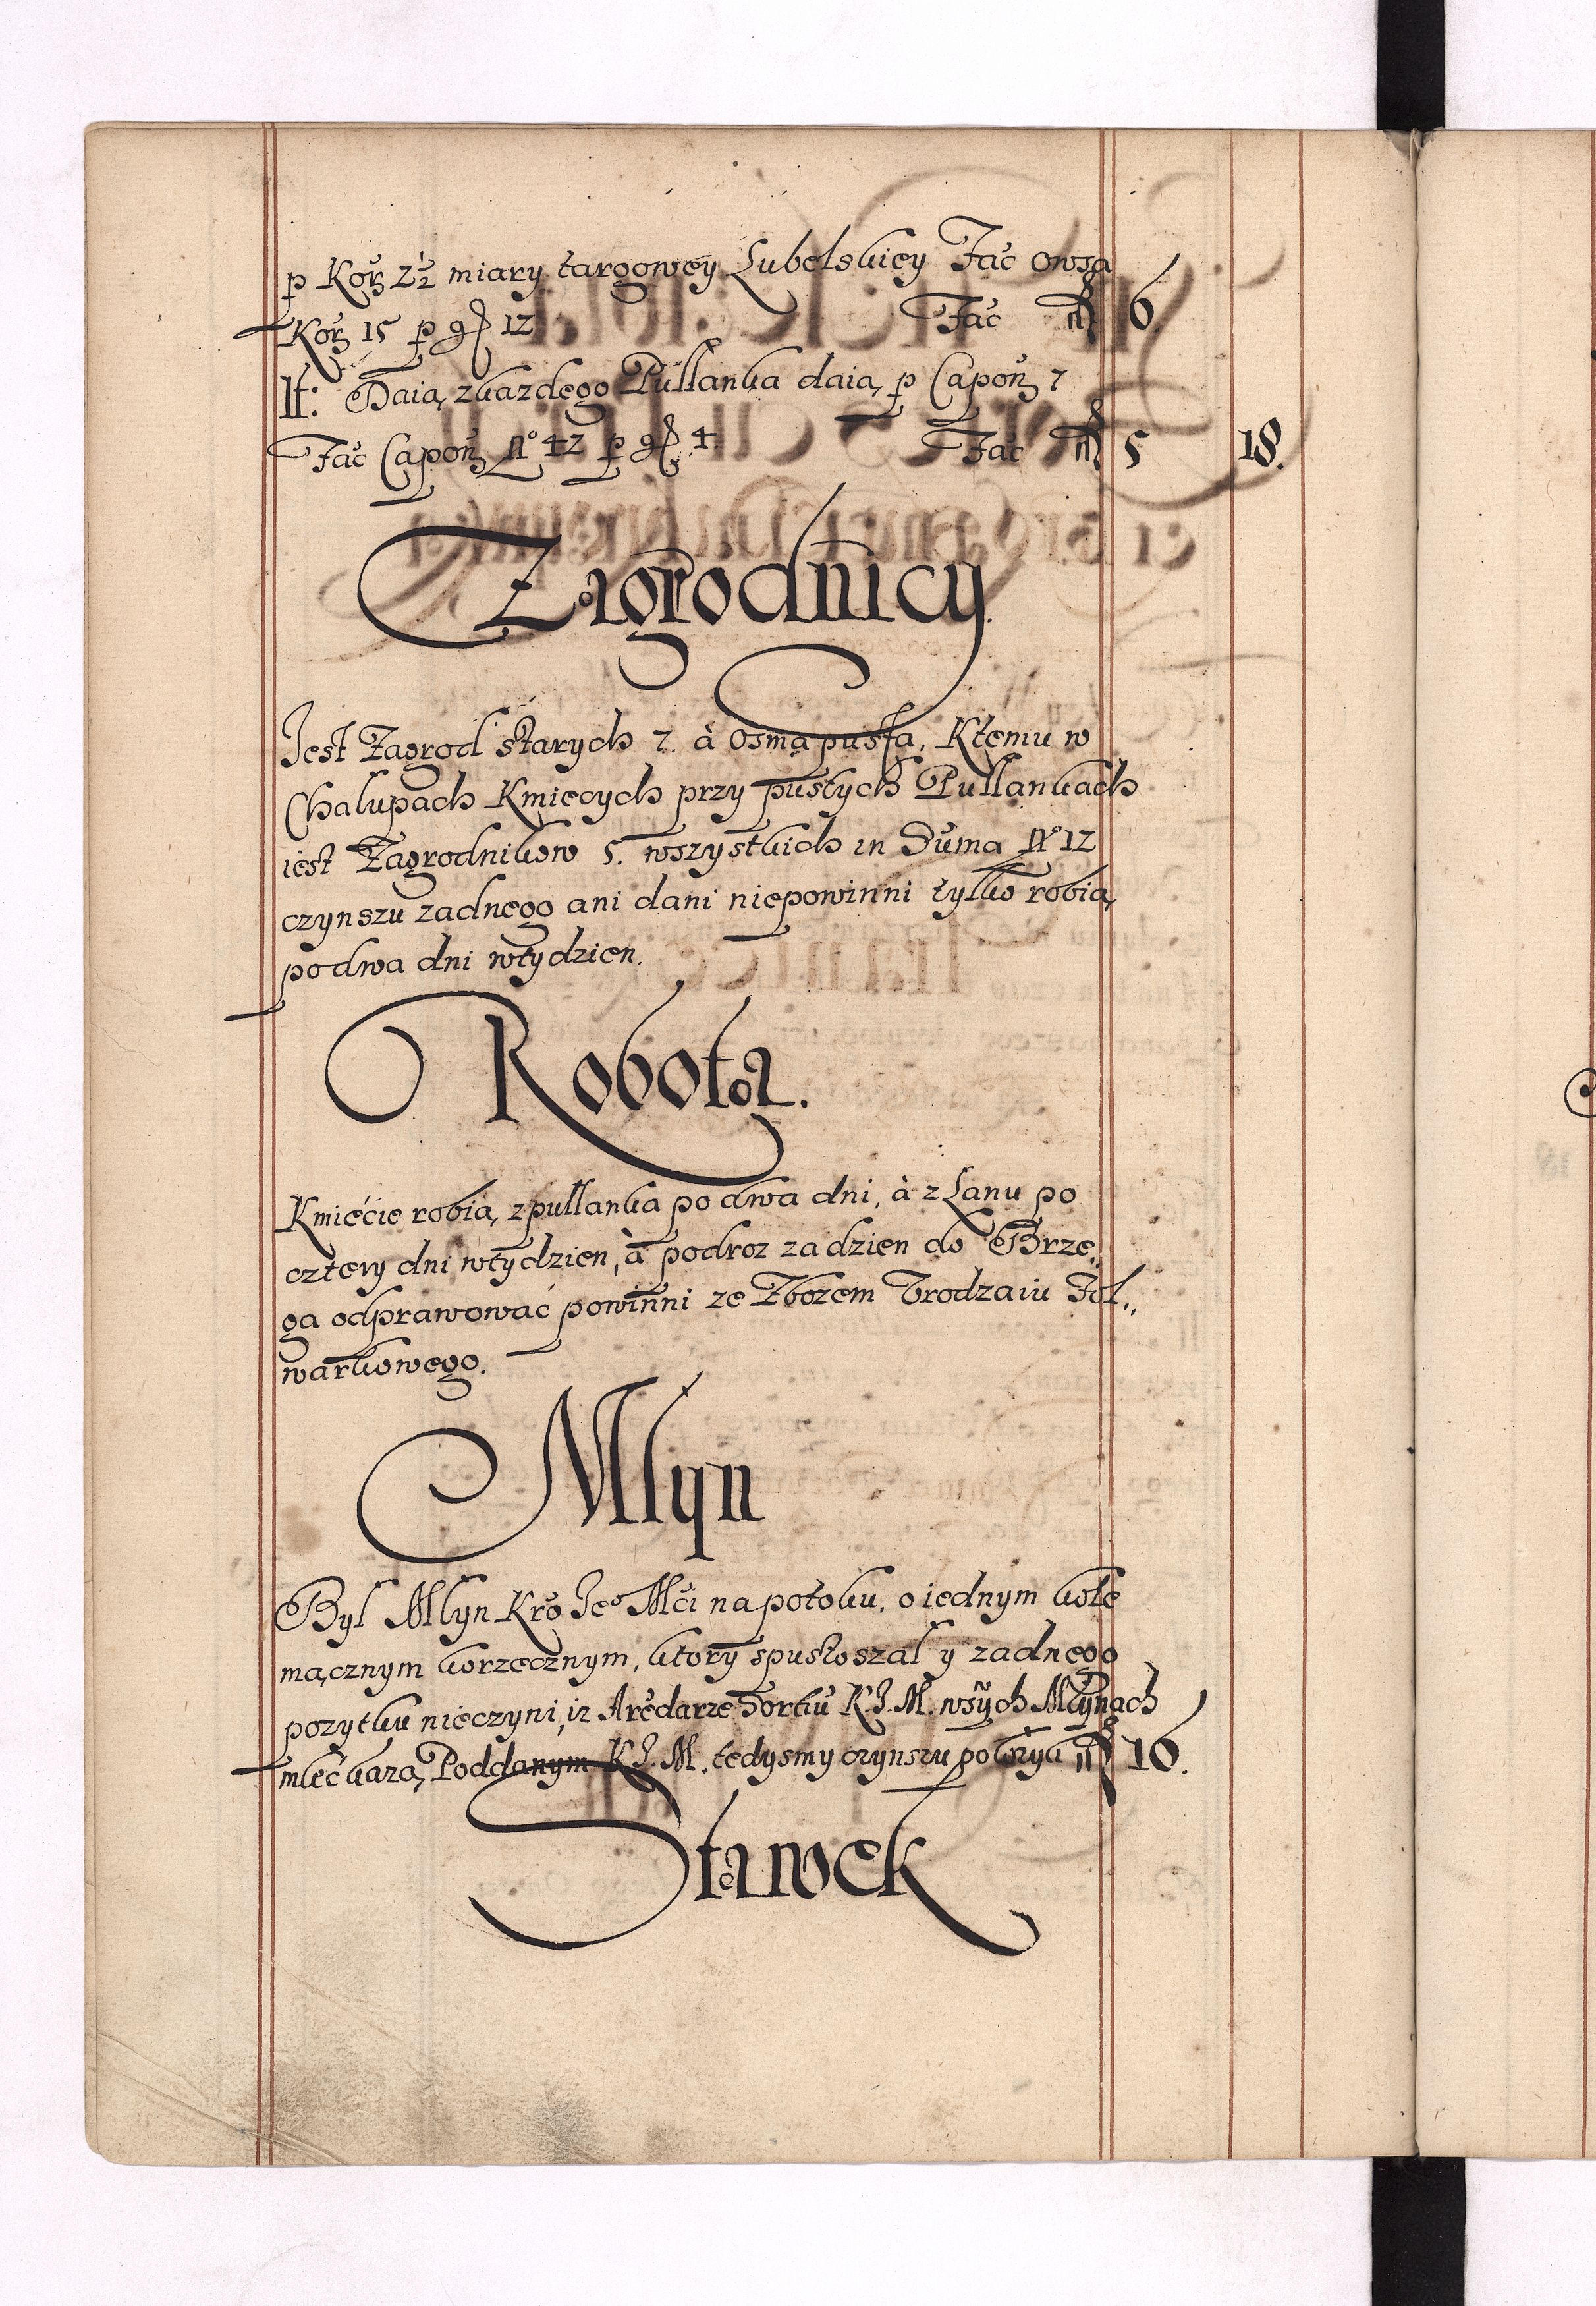 p Korz 2½ miary targowey Lubelskiey Fac owsa
Korz 15 p gr 12 Fac fl 6
It: Daią zkazdego Pullanka daią p Capon 7
Fac Capon No 42 p gr 4. Fac fl 5 18.
Zagrodnicy.
Iest Zagrod starych 7. à Osma pusta, Ktemu w
Chalupach Kmiecych przy pustych Pullankach
iest Zagrodnikow 5. wszystkich in Suma No 12
czynszu zadnego ani dani niepowinni tylko robią
podwa dni wtydzien.
Robota.
Kmiecie robią zpullanka po dwa dni, à z Lanu po
cztery dni wtydzien, à podroz za dzien do Brze„
ga odprawować powinni ze Zbozem Vrodzaiu Fol„
warkowego.
Mlyn
Byl Mlyn Kro Ieo Mći na potoku, o iednym kole
mącznym korzecznym, ktory spustoszal y zadnego
pozytku nieczyni, iz Aredarze Dorku K. I. M. wsych Mlynach
mleć kazą Poddanym K I. M. tedysmy czynszu polozyli fl 16.
Stawek